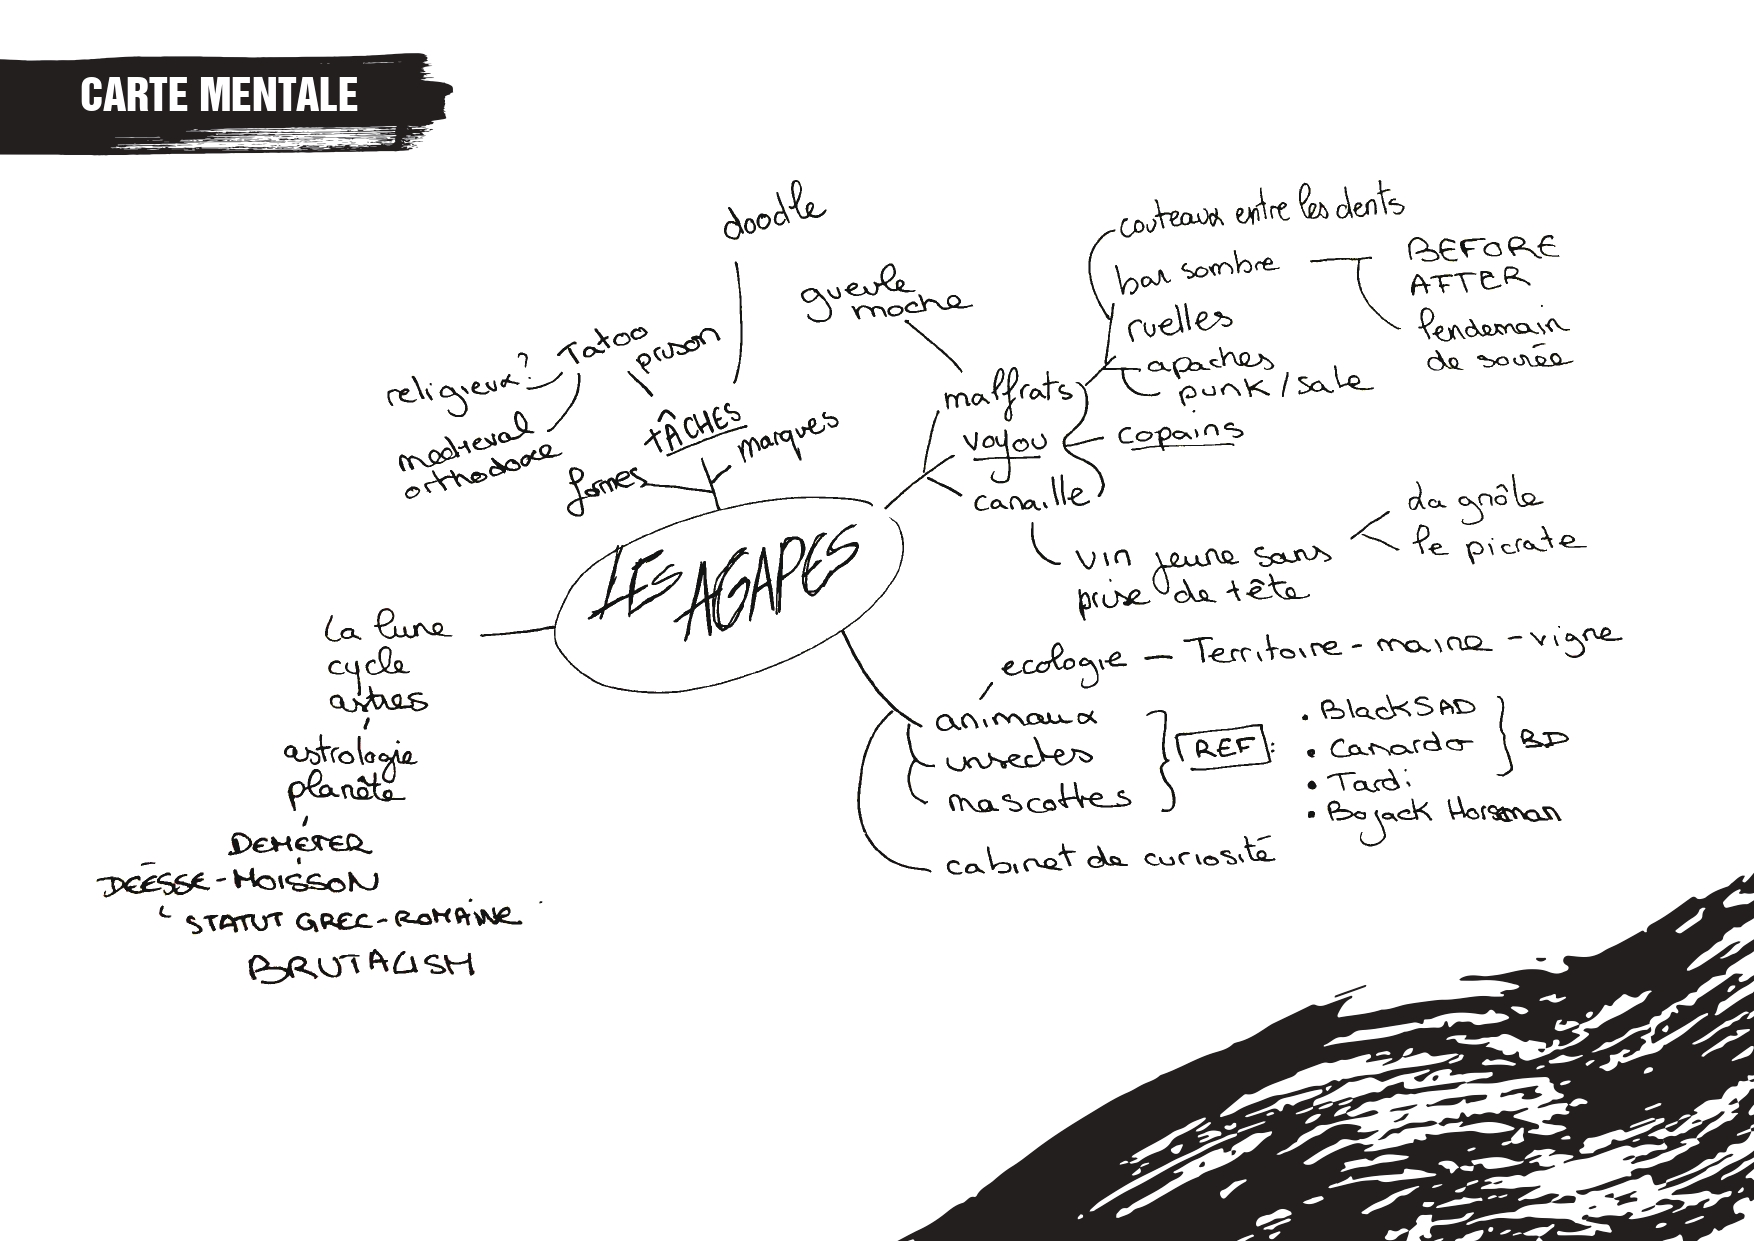 CARTE MENTALE
doodle
gueule
moche
Tatoo
prison
religieux?
medieval
orthodoxe
tÂCHES
marques
formes
LES AGAPES
malfrats
voyou
canaille
couteaux entre les dents
bar sombre
BEFORE
AFTER
lendemain
de soirée
ruelles
apaches
punk / sale
copains
vin jeune sans
prise de tête
La gnôle
le picrate
La lune
cycle
astres
astrologie
planête
DEMETER
DÉESSE - MOISSON
STATUT GREC - ROMAINE
BRUTALISM
ecologie — Territoire - maine - vigne
animaux
insectes
mascottes
REF :
• BlackSAD
• Canardo
• Tardi
• Bojack Horseman
BD
cabinet de curiosité